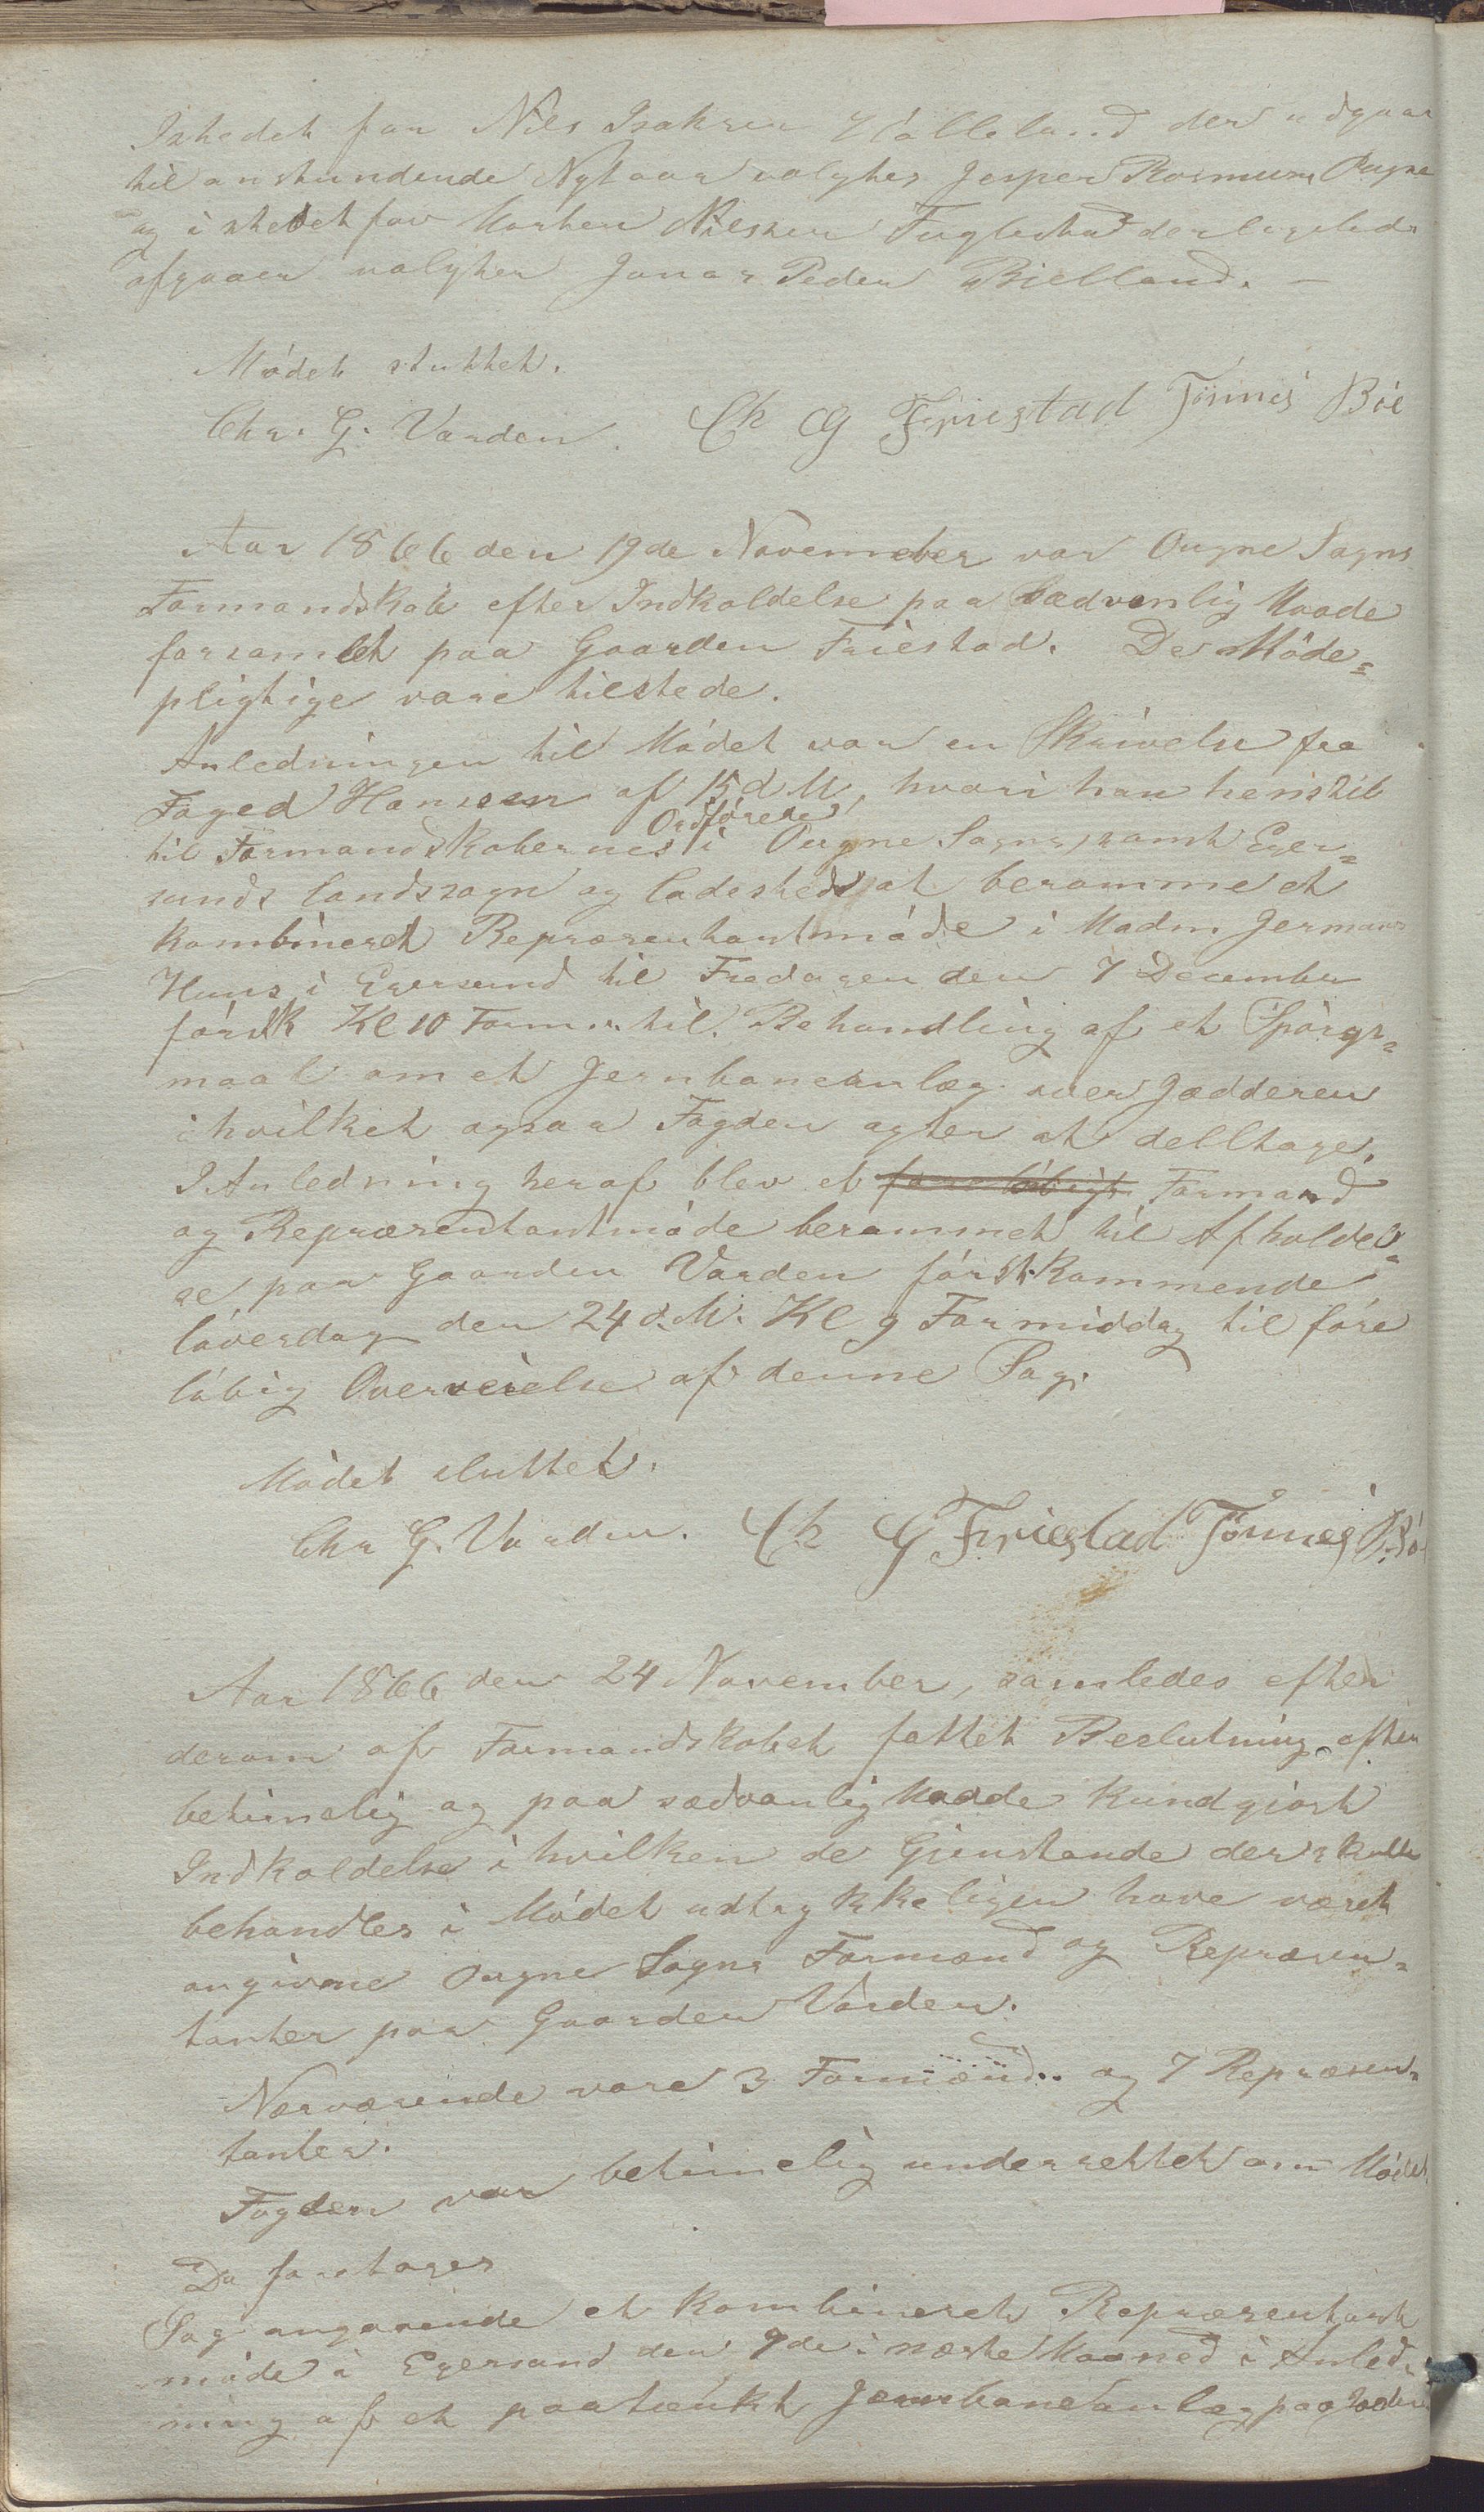 Istedet for Nils Isaksen Hålleland der udgaar
til anstundende Nytaar valgtes Jesper Rasmusen Ougne
og i stedet for Morten Nilssen Fuglestad der ligeledes
afgaaer valgtes Jonas Peder Bielland. —
Mødet sluttet.
Chr. G. Varden. Ch G Friestad Tönnes Böe
Aar 1866 den 19de November var Ougne Sogns
Formandskab efter Indkaldelse paa sædvanlig Maade
forsamlet paa Gaarden Friestad. De Møde=
pligtige vare tilstede.
Anledningen til Mødet var en Skrivelse fra
Foged Hanssen af 15 d. M, hvori han henstil
Ordførere
til Formandskabernes i Ougne Sogns, samt Eger=
sunds Landssogn og Ladesteds at beramme et
kombineret Repræsentantmøde i Madm. Jermans
Huus i Egersund til Fredagen den 7 December
førstk Kl 10 Form. til Behandling af et Spørgs=
maal om et Jernbaneanlæg over Jædderen
i hvilket ogsaa Fogden agter at delltage.
I Anledning heraf blev et foreløbigt Formand
og Repræsentantmøde berammet til Afholdel=
se paa Gaarden Varden førstkommende
Løverdag den 24 d. M. Kl 9 Formiddag til fore
løbig Overveielse af denne Sag.
Mødet sluttet.
Chr G. Varden. Ch G Friestad Tönnes Bö
Aar 1866 den 24 November, samledes efter
derom af Formandskabet fattet Beslutning efter
betimelig og paa sædvanlig Maade kundgjort
Indkaldelse i hvilken de Gjenstande der skulle
behandles i Mødet udtrykkeligen have været
angivne Ougne Sogns Formænd og Repræsen=
tanter paa Gaarden Varden.
Nærværende vare 3 Formænd og 7 Repræsen=
tanter.
Fogden var betimelig underrettet om Mødet.
Da foretoges
Sag angaaende et kombineret Repræsentant
møde i Egersund den 7de i næste Maaned i Anled=
ning af et paatænkt Jernbaneanlæg paa Jædderen